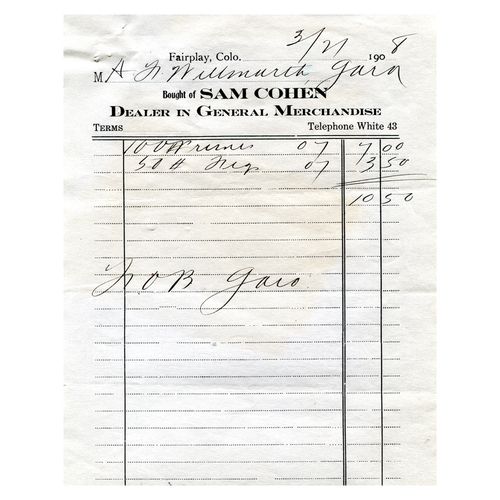 Fairplay, Colo. 3/21 1908
M A F Willmarth Garo
Bought of SAM COHEN
DEALER IN GENERAL MERCHANDISE
TERMS Telephone White 43
100# Prunes 07 7 00
50# Figs 07 3 50
10 50
F.O B Garo